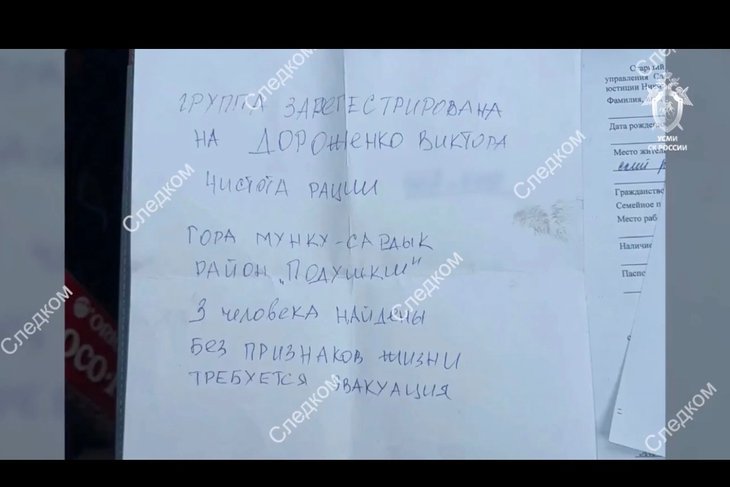 ГРУППА ЗАРЕГЕСТРИРОВАНА
НА ДОРОЖЕНКО ВИКТОРА
ЧИСТОТА РАЦИИ
ГОРА МУНКУ-САРДЫК
РАЙОН „ПОДУШКИ"
3 человека НАЙДЕНЫ
БЕЗ ПРИЗНАКОВ ЖИЗНИ
ТРЕБУЕТСЯ ЭВАКУАЦИЯ
управления Сл
юстиции
Фамилия,
Дата рожде
Место жител
Гражданств
Семейное п
Место раб
Наличие
Паспо
УСМИ
СК РОССИИ
Следком
Следком
Следком
Следком
Следком
Следком
Следком
Следком
Следком